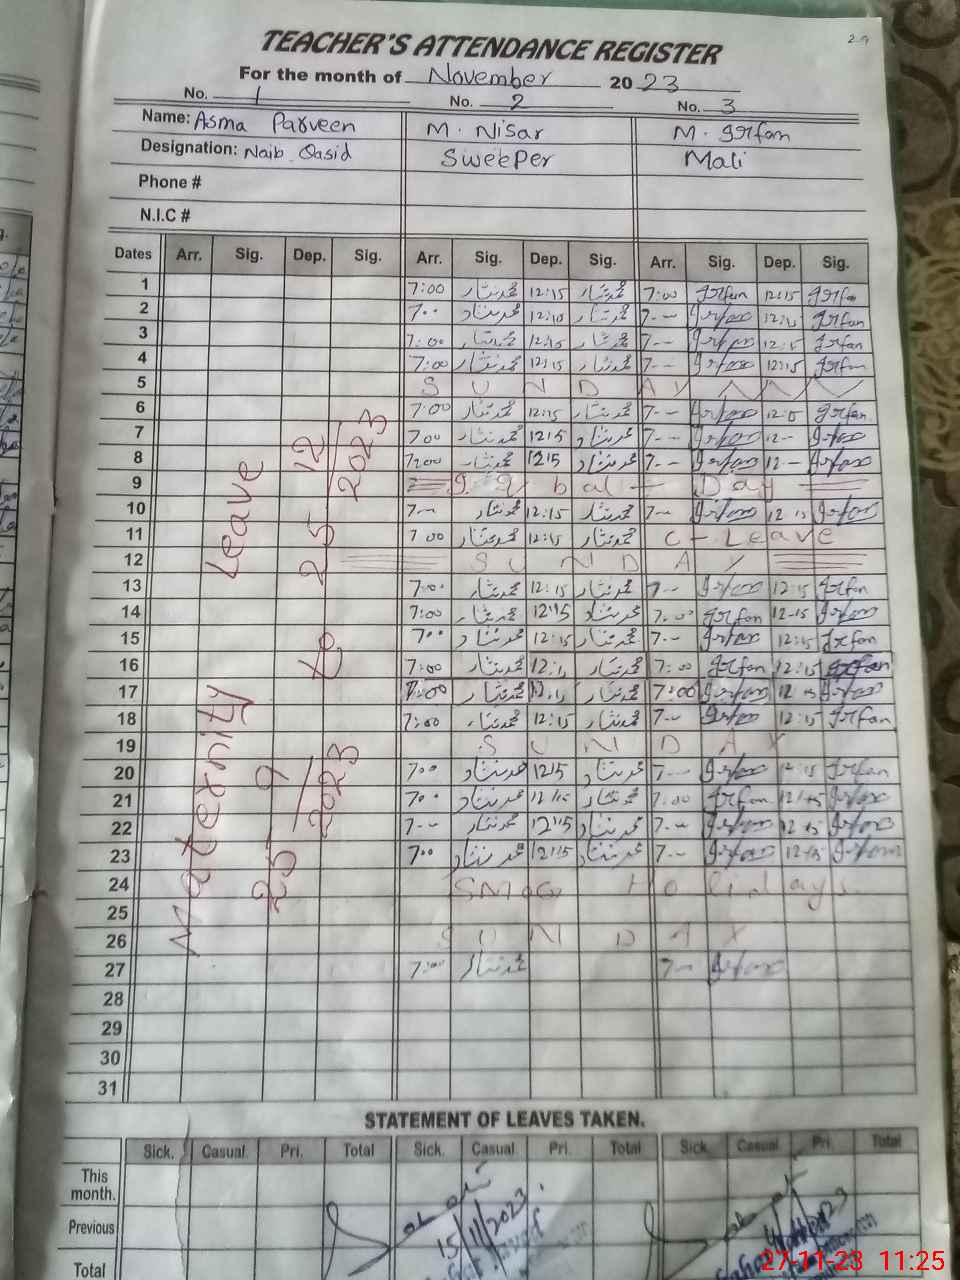 29
TEACHER'S ATTENDANCE REGISTER
For the month of November 2023
No. 1 No. 2 No. 3
Name: Asma Parveen M. Nisar M. Irfan
Designation: Naib Qasid Sweeper Mali
Phone #
N.I.C #
Dates Arr. Sig. Dep. Sig. Arr. Sig. Dep. Sig. Arr. Sig. Dep. Sig.
1 7:00 محمد نثار 12:15 محمد نثار 7:00 Irfan 12:15 Irfan
2 7-- محمد نثار 12:10 محمد نثار 7-- Irfan 12:15 Irfan
3 7:00 محمد نثار 12:15 محمد نثار 7-- Irfan 12:15 Irfan
4 7:00 محمد نثار 12:15 محمد نثار 7-- Irfan 12:15 Irfan
5 SUNDAY
6 7:00 محمد نثار 12:15 محمد نثار 7-- Irfan 12:15 Irfan
7 700 محمد نثار 1215 محمد نثار 7-- Irfan 12-- Irfan
8 7:00 محمد نثار 1215 محمد نثار 7-- Irfan 12-- Irfan
9 Iqbal Day
10 7-- محمد نثار 12:15 محمد نثار 7-- Irfan 12 15 Irfan
11 7 00 محمد نثار 12:15 محمد نثار C-Leave
12 SUNDAY
13 7:00 محمد نثار 12:15 محمد نثار 7-- Irfan 12:15 Irfan
14 7:00 محمد نثار 12:15 محمد نثار 7:00 Irfan 12-15 Irfan
15 700 محمد نثار 12:15 محمد نثار 7-- Irfan 12:15 Irfan
16 7:00 محمد نثار محمد نثار 7:00 Irfan 12:15 Irfan
17 7:00 محمد نثار محمد نثار 7:00 Irfan 12 15 Irfan
18 7:00 محمد نثار 12:15 محمد نثار 7-- Irfan 12:15 Irfan
19 SUNDAY
20 700 محمد نثار 1215 محمد نثار 7-- Irfan 12:15 Irfan
21 700 محمد نثار 12/15 محمد نثار 7:00 Irfan 12/15 Irfan
22 7-- محمد نثار 12:15 محمد نثار 7-- Irfan 12 15 Irfan
23 700 محمد نثار 1215 محمد نثار 7-- Irfan 12-15 Irfan
24 SMOG Holindays.
25
26 SUNDAY
27 7:00 محمد نثار 7-- Irfan
28
29
30
31
Maternity Leave
25 9/2023 to 25 12/2023
STATEMENT OF LEAVES TAKEN.
Sick. Casual Pri. Total Sick. Casual Pri. Total Sick. Casual Pri. Total
This
month.
Previous
15/11/2023
Total
27-11-23 11:25